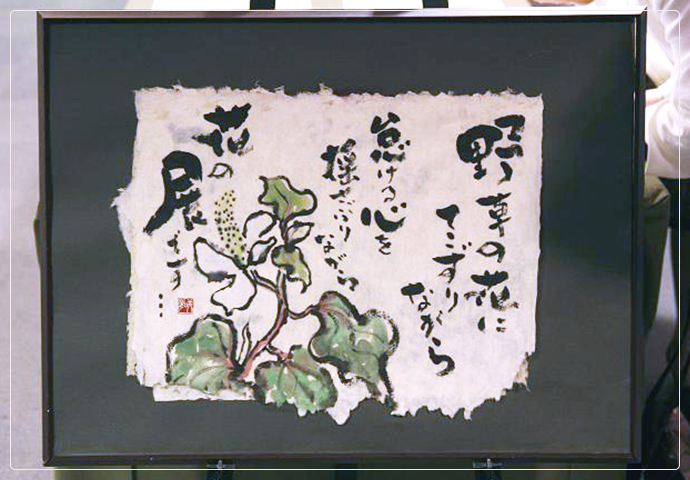 野草の花に
てこずり
ながら
怠ける心を
揺さぶり
ながら
花の
展です…